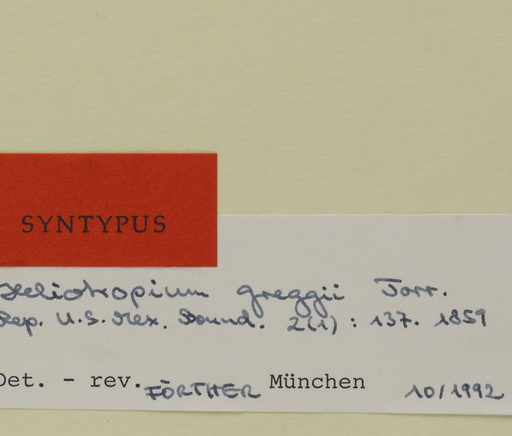 SYNTYPUS
Heliotropium greggii Torr.
Rep. U.S. Mex. Bound. 2(1) : 137. 1859
Det. - rev. FÖRTHER München 10/1992